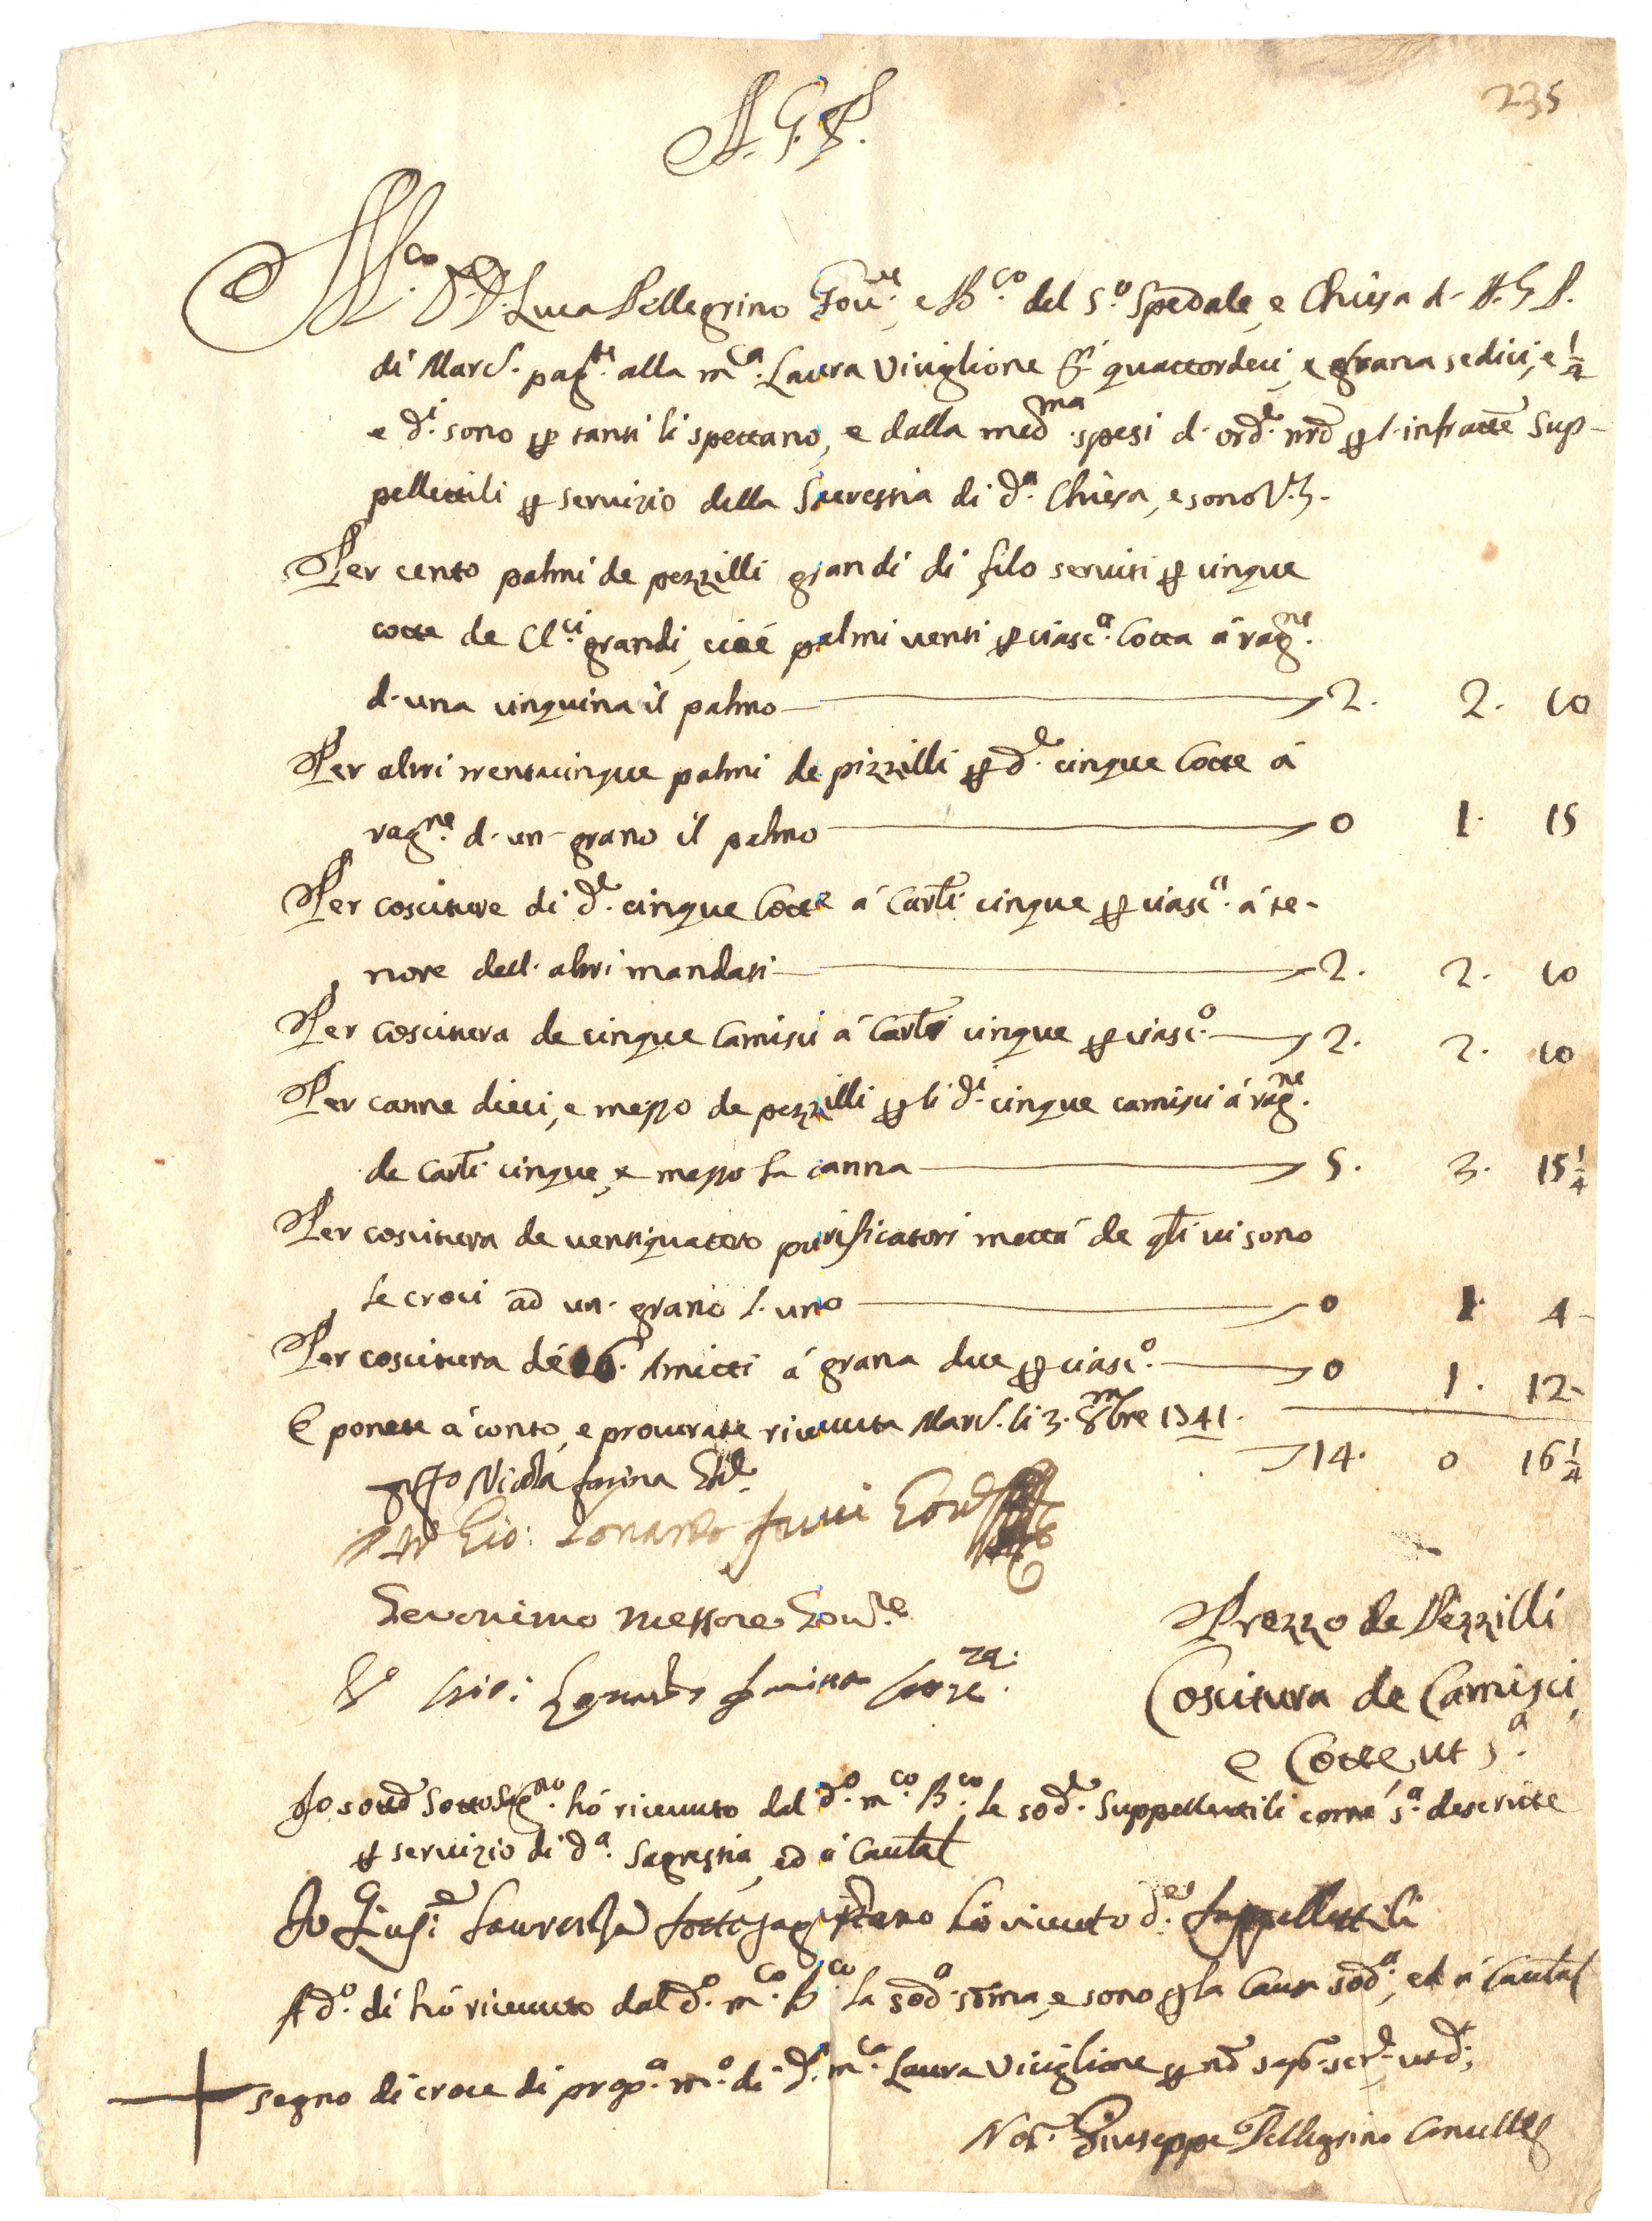 235
A. G. P.
M.co D. D. Luca Pellegrino Gov.re, e B.co del S.o Spedale, e Chiesa d. A. G. P.
di Marc. pag.te alla m.ca Laura Viviglione quattordeci, e grana sedici, e 1/4
e d.i sono p tanti li spettano, e dalla med.ma spesi d. ord.e nrō p l'infratte Sup-
pellettili p servizio della Sacrestia di d.a Chiesa, e sono V.3.
Per cento palmi de pezzilli grandi di filo serviti p cinque
cotte de Cl.ci grandi, cioé palmi venti p ciasc.a Cotta á rag.ne
d. una cinquina il palmo 2. 2. 10
Per altri trentacinque palmi de pizzilli p d.e cinque Cotte á
rag.ne d. un grano il palmo 0 1. 15
Per cosciture di d.e cinque Cotte á Carli cinque p ciasc.a á te-
nore dell. altri mandati 2. 2. 10
Per coscitura de cinque Camisci á Carli cinque p ciasc.o 2. 2. 10
Per canne dieci, e mezzo de pezzilli p li d.i cinque camisci á rag.ne
de Carli cinque, e mezzo la canna 5. 3. 15 1/4
Per coscitura de ventiquattro purificatori mettá de qli vi sono
le croci ad un. grano l. uno 0 1. 4
Per coscitura dé 16. Amitti á grana due p ciasc.o 0 1. 12
E ponete á conto, e procurate ricevuta Marc. li 3. 8mbre 1741.
14. 0 16 1/4
Io Nicola farina
Gio: Lonardo
Geronimo Messore Gov.re
Prezzo de Pezzilli
Coscitura de Camisci,
e Cotte ut s.a
Io sottō Sottosag.no hó ricevuto dal d.o m.co B.co le sod.e Suppellettili comé s.a descritte
p servizio di d.a Sagrestia, ed á Cautal
Io Gius.e sottosagristano hó ricevuto d.es suppellettili
A d.o dí hó ricevuto dal d.o m.co B.co la sod.a sōma, e sono p la Causa sod.a, ed á Cautal
segno di croce di prop.a m.o di d.a m.ca Laura Viviglione p nō sap. scr.e
Not. Giuseppe Pellegrino